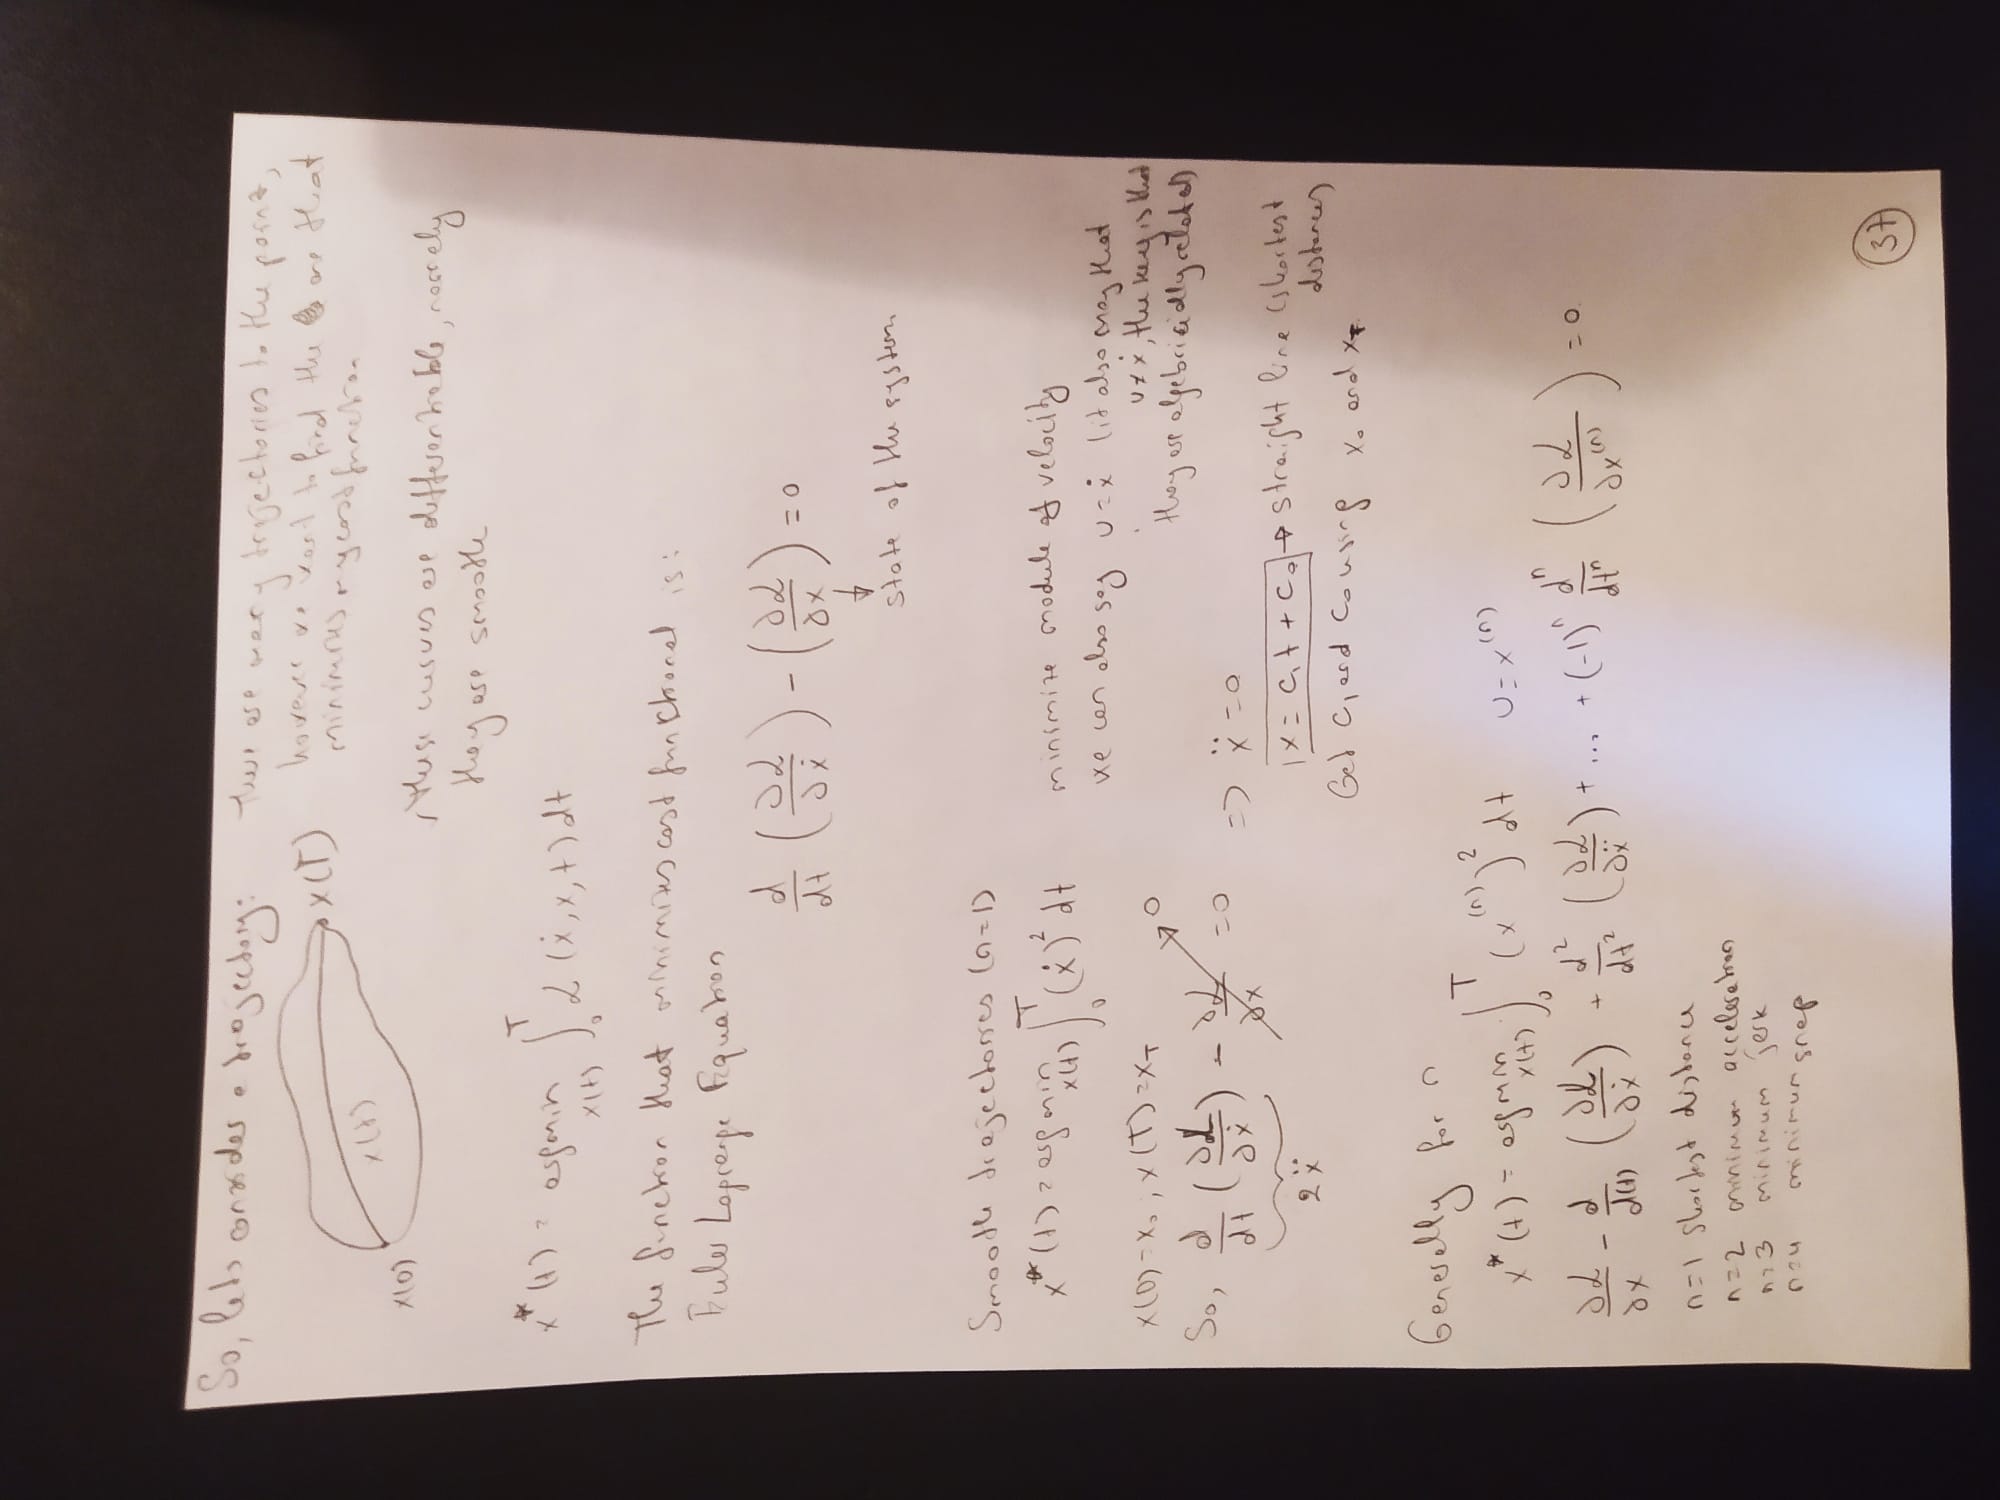 So, lets consider a trajectory:
x(0)
x(t)
x(T)
There are many trajectories to the point,
however we want to find the one that
minimizes my cost function
these curves are differentiable, namely
they are smooth
x*(t) = argmin x(t) ∫₀ᵀ ℒ(ẋ,x,t)dt
The function that minimizes cost functional is:
Euler Lagrange Equation
d/dt (∂ℒ/∂ẋ) - (∂ℒ/∂x) = 0
state of the system
Smooth trajectories (n=1)
x*(t) = argmin x(t) ∫₀ᵀ (ẋ)² dt
minimize module of velocity
we can also say u=ẋ (it also may that
u≠ẋ, the key is that
they are algebricially related)
x(0)=x₀ ; x(T)=x_T
So, d/dt (∂ℒ/∂ẋ) - ∂ℒ/∂x = 0 => ẍ=0
0
2ẍ
x = c₁t + c₀ → straight line (shortest
distances)
Get c₁ and c₀ using x₀ and x_T
Generally for n
x*(t) = argmin x(t) ∫₀ᵀ (x⁽ⁿ⁾)² dt u=x⁽ⁿ⁾
∂ℒ/∂x - d/d(t) (∂ℒ/∂ẋ) + d²/dt² (∂ℒ/∂ẍ) + ... + (-1)ⁿ dⁿ/dtⁿ (∂ℒ/∂x⁽ⁿ⁾) = 0
n=1 shortest distance
n=2 minimum acceleration
n=3 minimum jerk
n=4 minimum snap
37